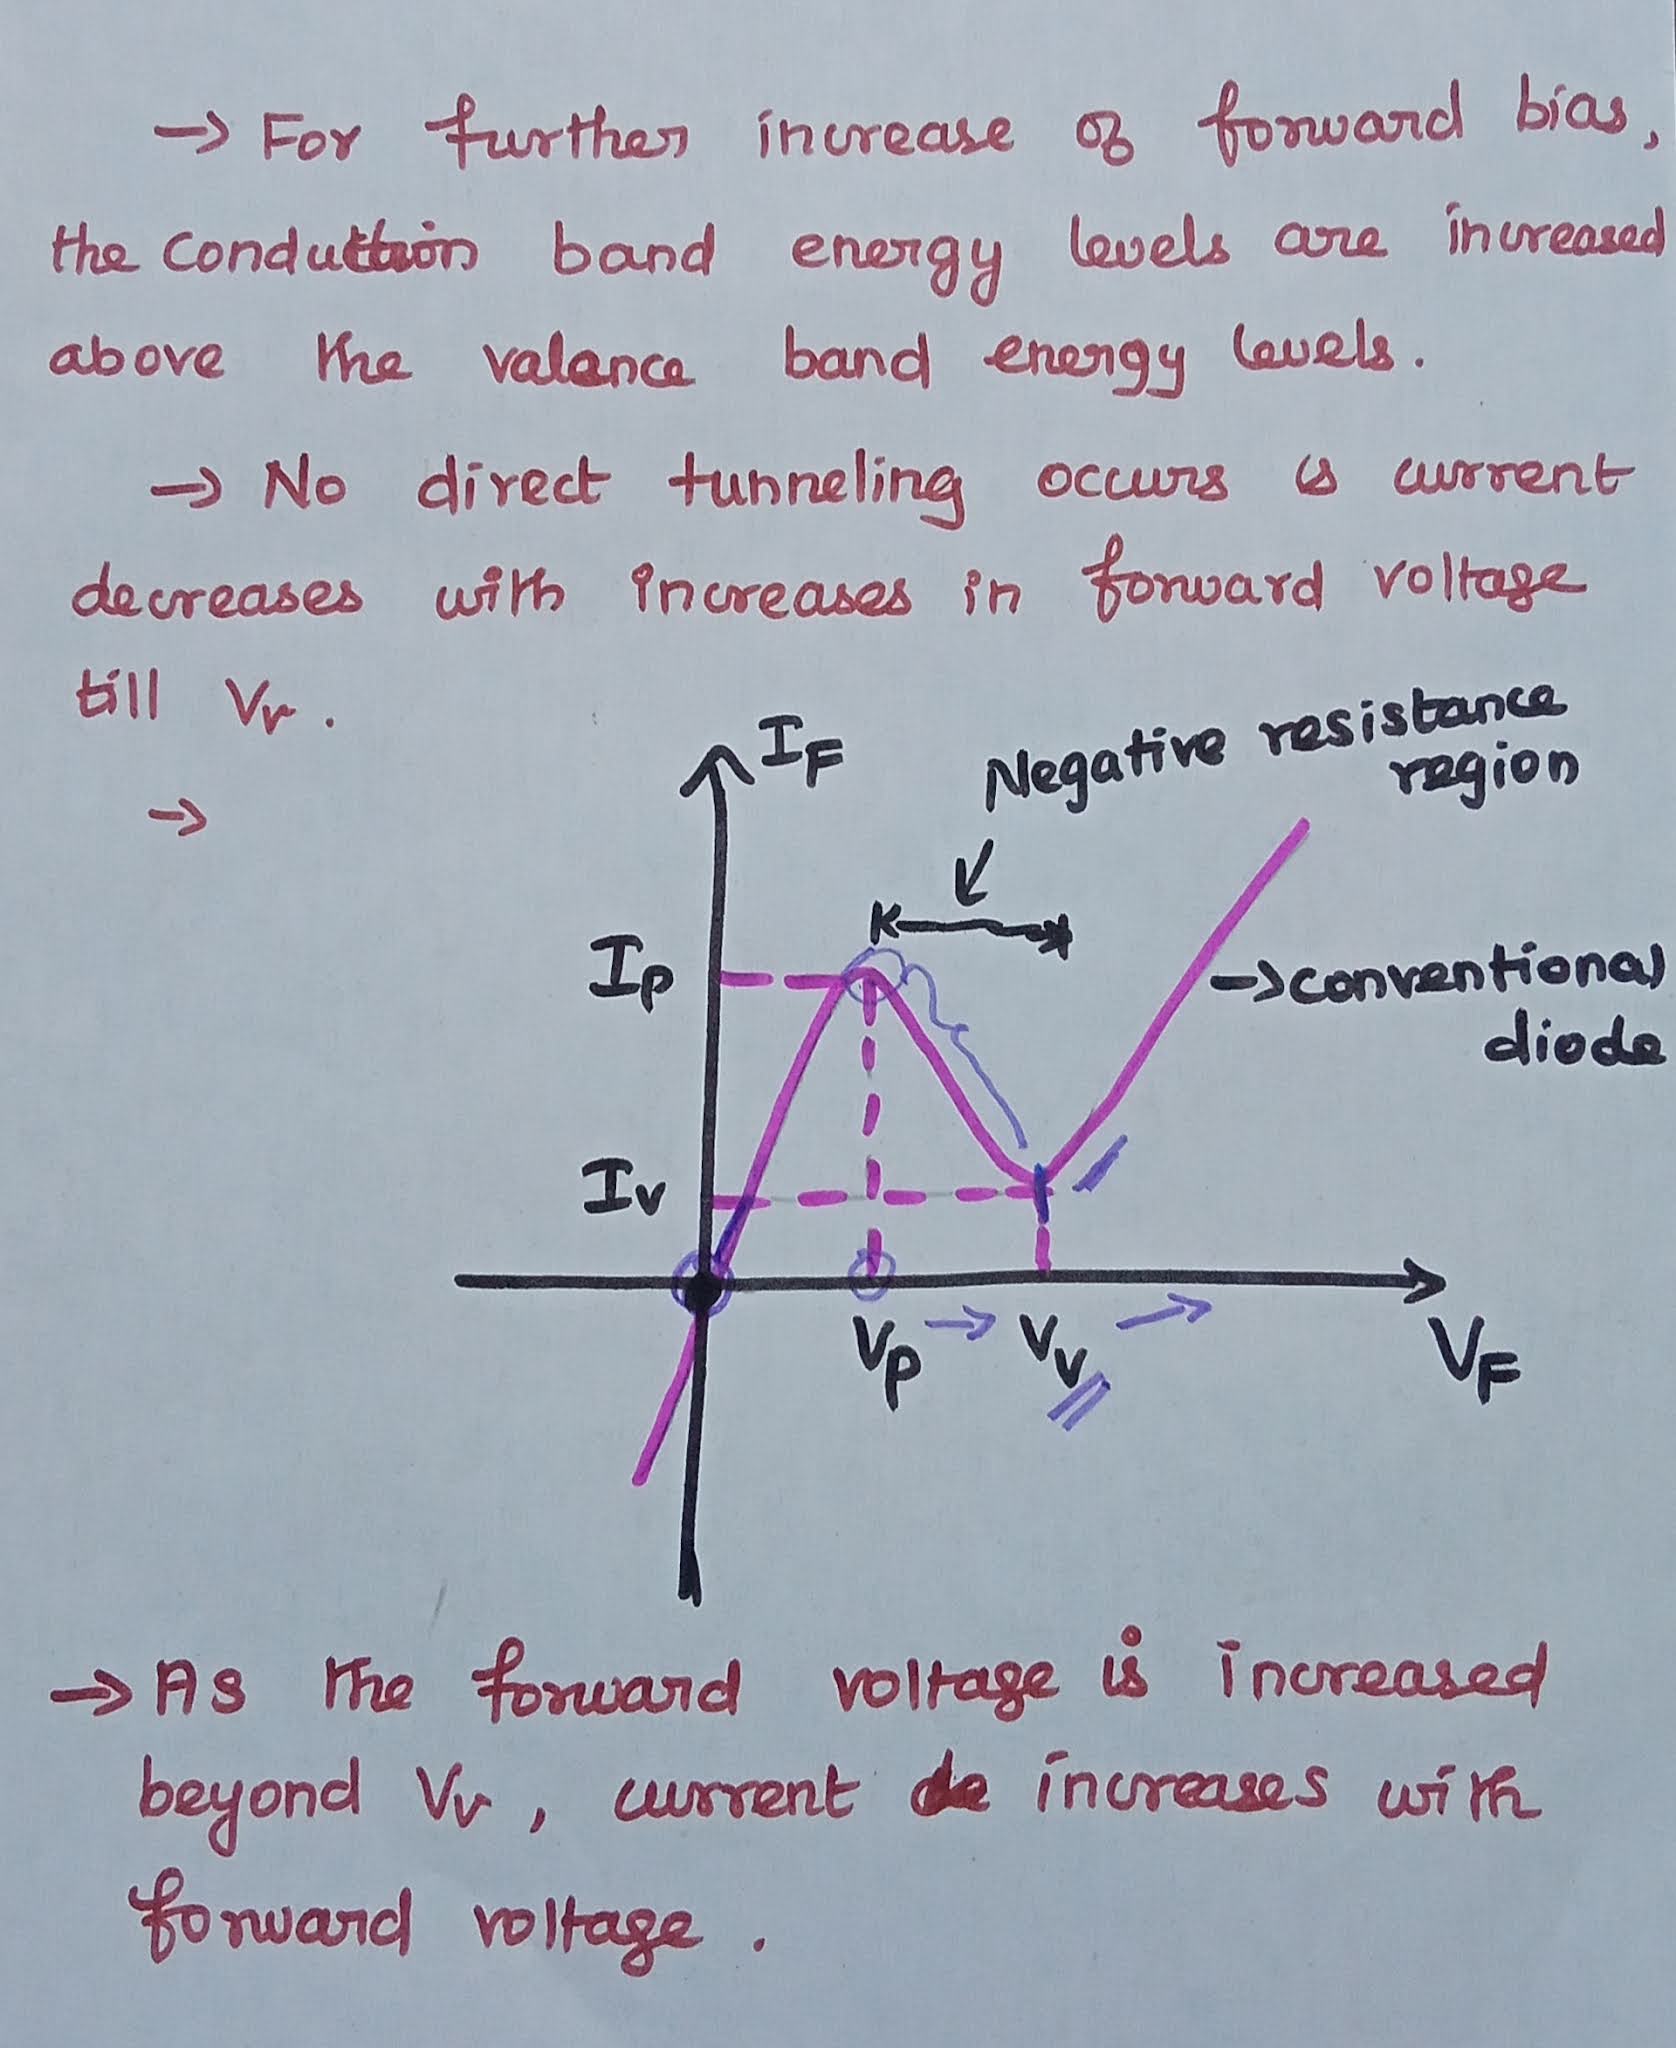 → For further increase of forward bias,
the conduction band energy levels are increased
above the valance band energy levels.
→ No direct tunneling occurs is current
decreases with increases in forward voltage
till Vv.
→
IF
Negative resistance
region
Ip
→conventional
diode
Iv
Vp → Vv →
VF
→ As the forward voltage is increased
beyond Vv, current increases with
forward voltage.